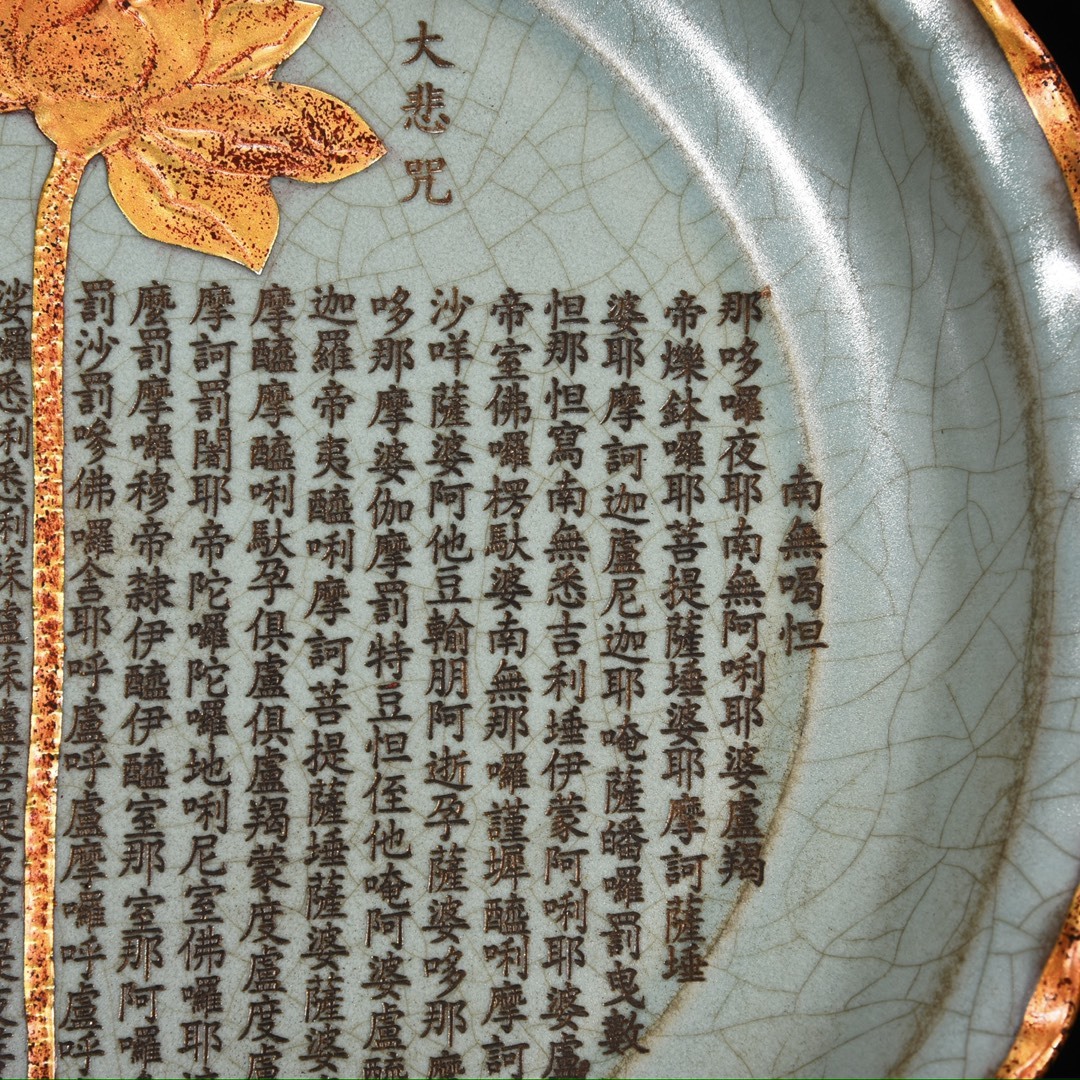 大悲咒
南無喝怛
那哆囉夜耶南無阿唎耶婆盧羯
帝爍鉢囉耶菩提薩埵婆耶摩訶薩埵
婆耶摩訶迦盧尼迦耶唵薩皤囉罰曳數
怛那怛寫南無悉吉利埵伊蒙阿唎耶婆盧
帝室佛囉楞馱婆南無那囉謹墀醯唎摩訶
沙咩薩婆阿他豆輸朋阿逝孕薩婆哆那摩
哆那摩婆伽摩罰特豆怛侄他唵阿婆盧醯
迦羅帝夷醯唎摩訶菩提薩埵薩婆薩婆
摩醯摩醯唎馱孕俱盧俱盧羯蒙度盧度盧
摩訶罰闍耶帝陀囉陀囉地唎尼室佛囉耶
麼罰摩囉穆帝隸伊醯伊醯室那室那阿囉
罰沙罰嘇佛囉舍耶呼盧呼盧摩囉呼盧呼
娑囉悉利悉利蘇盧蘇盧菩提夜菩提夜